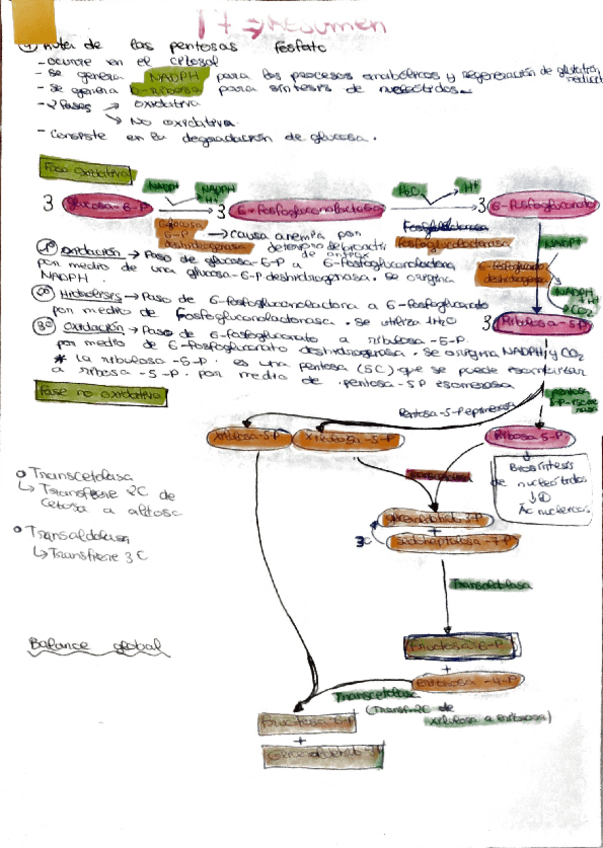 T7 → Resumen
① Ruta de las pentosas fosfato
- ocurre en el citosol
- se genera NADPH para los procesos anabólicos y regeneración de glutatión reduct
- se genera 5-Ribosa para síntesis de nucleótidos
- 2 fases → oxidativa
→ No oxidativa
- Consiste en la degradación de glucosa.
Fase oxidativa
3 Glucosa-6-P → 3 6-fosfogluconolactona → 3 6-fosfogluconato
NADP+ NADPH H+ H2O H+
Glucosa 6-P deshidrogenasa → causa anemia por
fosfogluconolactonasa
NADP+
6-fosfogluconato deshidrogenasa
NADPH + H+
CO2
3 Ribulosa-5-P
1º Oxidación → Paso de glucosa-6-P a 6-fosfogluconolactona
por medio de una glucosa-6-P deshidrogenasa. se origina
NADPH.
2º Hidrólisis → Paso de 6-fosfogluconolactona a 6-fosfogluconato
por medio de fosfogluconolactonasa. se utiliza 1H2O
3º Oxidación → Paso de 6-fosfogluconato a ribulosa-5-P.
por medio de 6-fosfogluconato deshidrogenasa. se origina NADPH y CO2
* la ribulosa-5-P. es una pentosa (5C) que se puede isomerizar
a ribosa-5-P. por medio de pentosa-5P isomerasa
Fase no oxidativa
Pentosa-5-P epimerasa
pentosa 5-P-isomerasa
Xilulosa-5-P Xilulosa-5-P Ribosa 5-P
Biosíntesis
de nucleótidos
Ác nucleicos
o Transcetolasa
↳ Transfiere 2C de
cetosa a aldosa
Transcetolasa
Gliceraldehido 3-P
+
3C Sedoheptulosa-7-P
o Transaldolasa
↳ Transfiere 3C
Transaldolasa
Balance global
Fructosa 6-P
+
Eritrosa-4-P
Transcetolasa
(Transf. 2C de
xilulosa a eritrosa)
Fructosa 6-P
+
Gliceraldehido 3-P